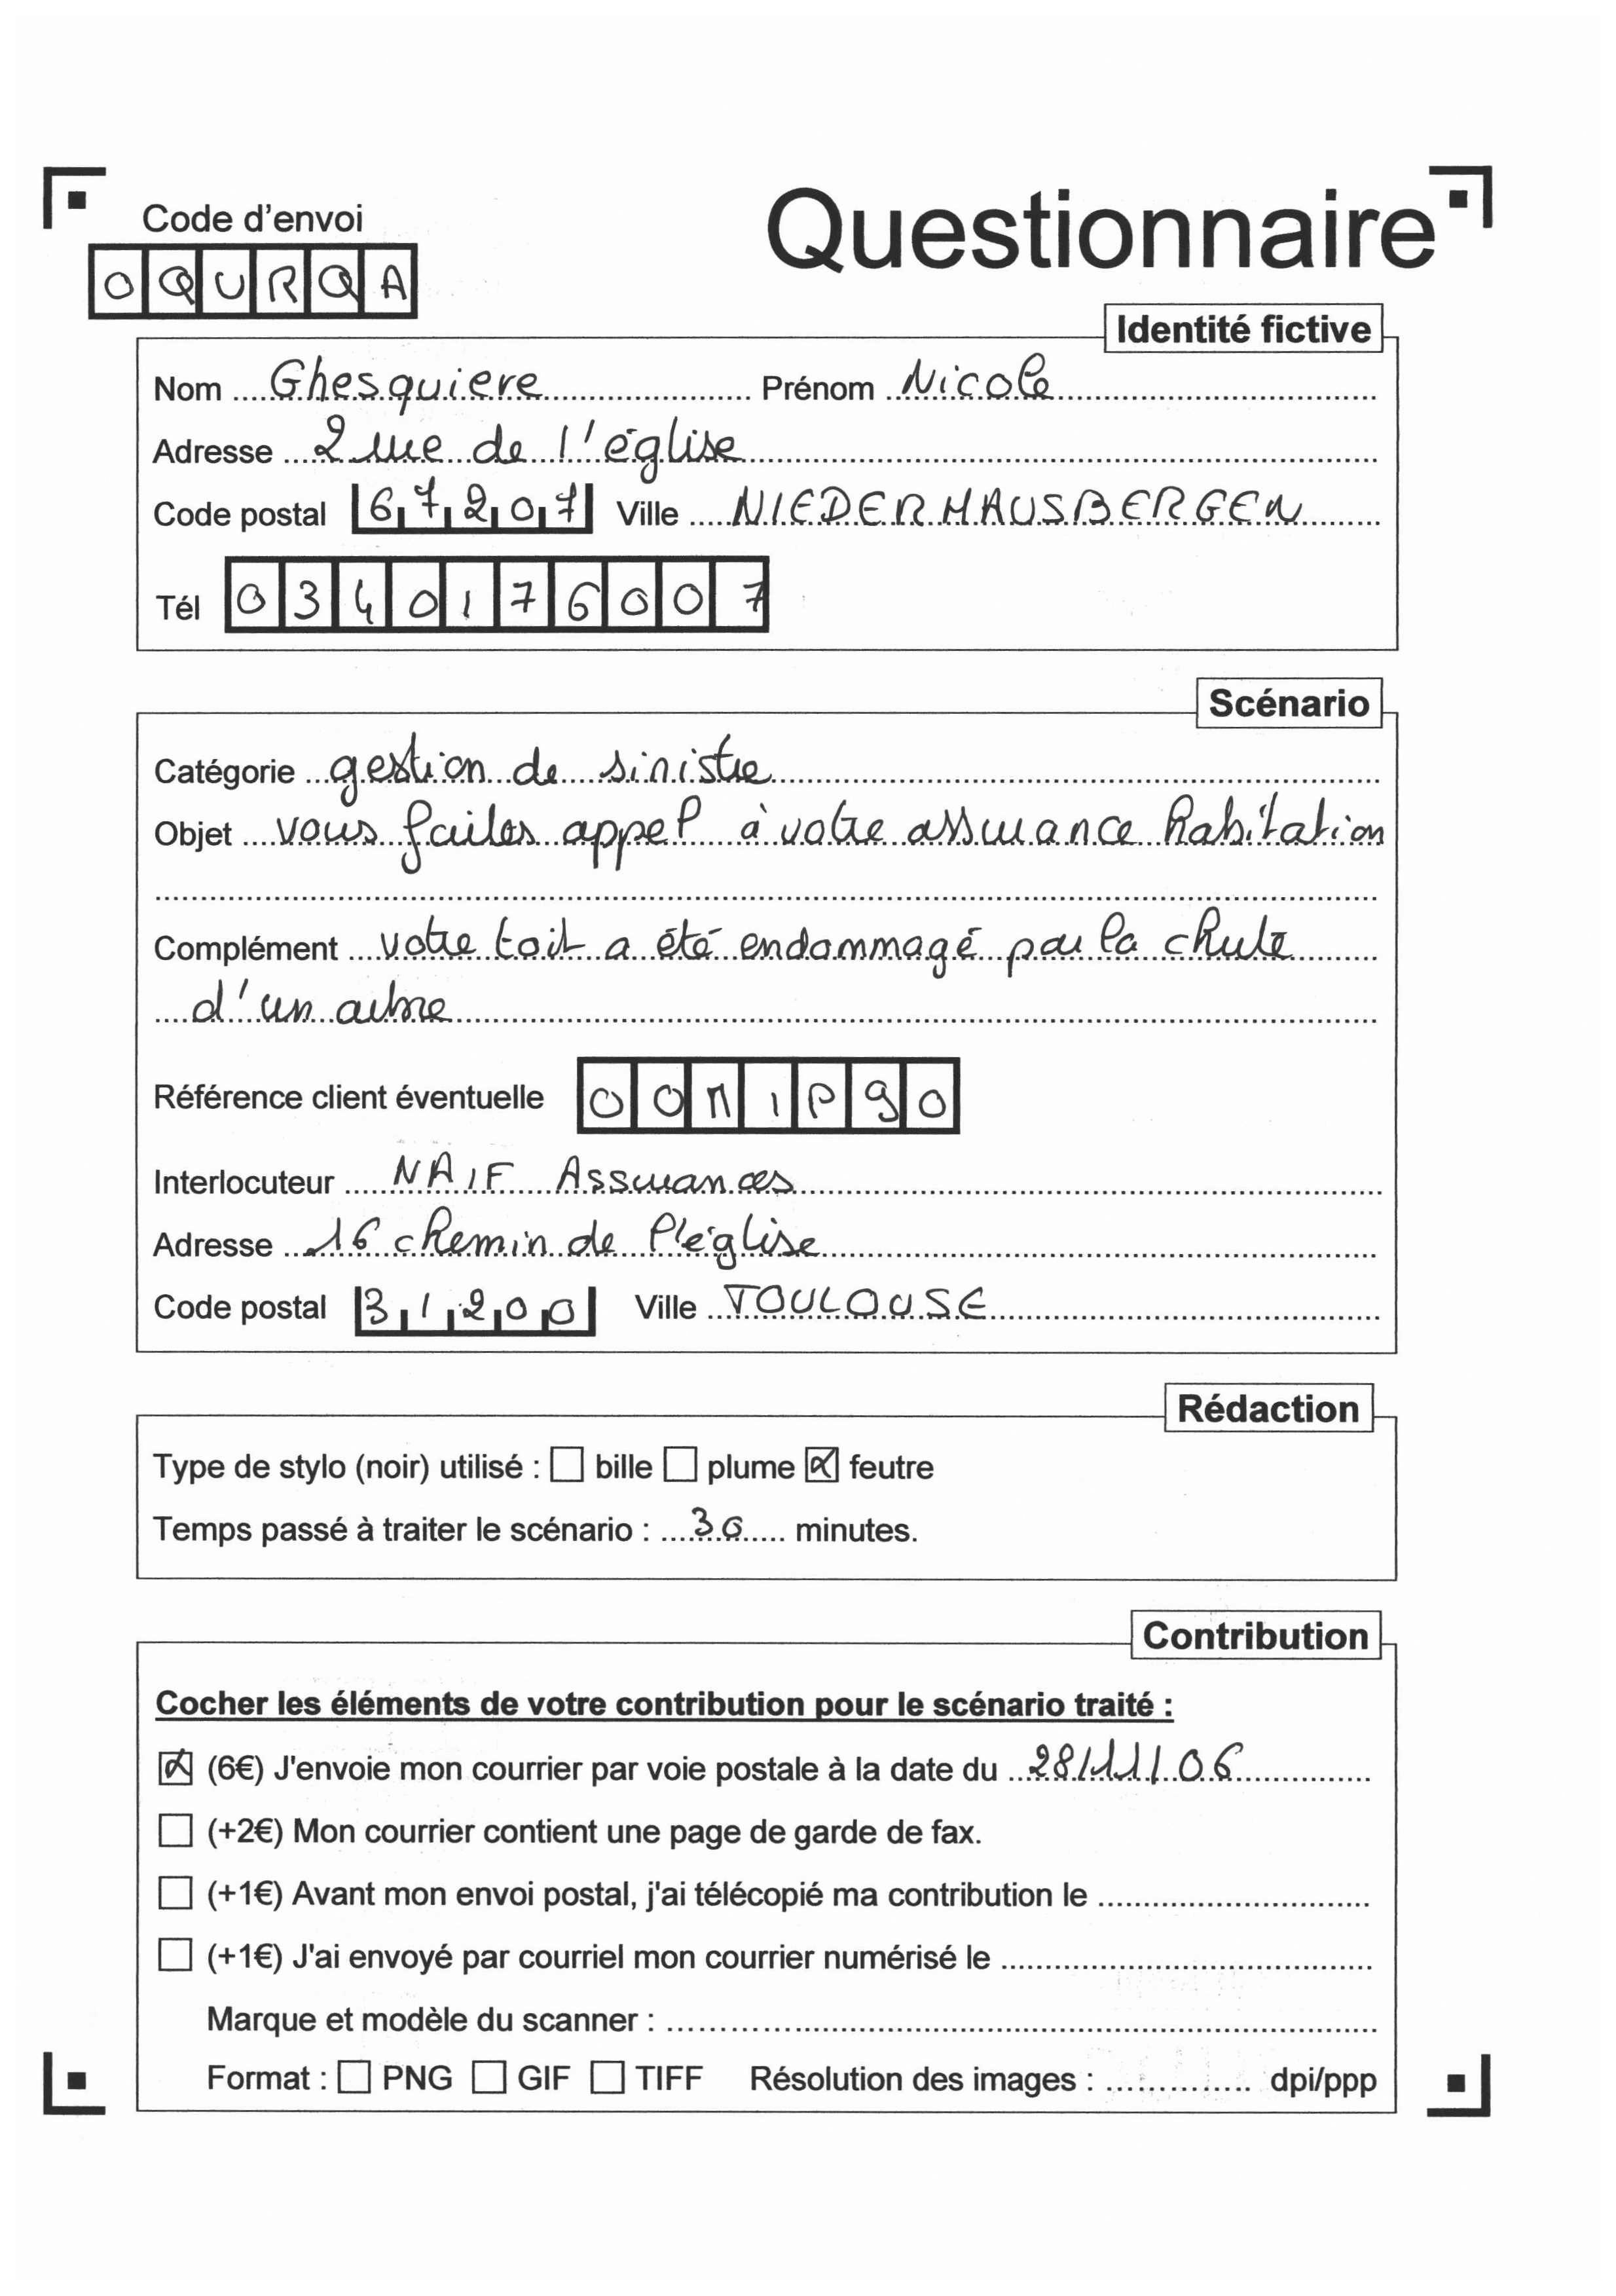 Code d'envoi
Questionnaire
OQURQA
Identité fictive
Nom Ghesquiere Prénom Nicole
Adresse 2 rue de l'église
Code postal 67207 Ville NIEDERHAUSBERGEN
Tél 0340176007
Scénario
Catégorie gestion de sinistre
Objet vous faites appel à votre assurance habitation
Complément votre toit a été endommagé par la chute
d'un arbre
Référence client éventuelle OONIP90
Interlocuteur NAIF Assurances
Adresse 16 chemin de l'église
Code postal 31200 Ville TOULOUSE
Rédaction
Type de stylo (noir) utilisé : ☐ bille ☐ plume ☒ feutre
Temps passé à traiter le scénario : 30 minutes.
Contribution
Cocher les éléments de votre contribution pour le scénario traité :
☒ (6€) J'envoie mon courrier par voie postale à la date du 28/11/06
☐ (+2€) Mon courrier contient une page de garde de fax.
☐ (+1€) Avant mon envoi postal, j'ai télécopié ma contribution le
☐ (+1€) J'ai envoyé par courriel mon courrier numérisé le
Marque et modèle du scanner :
Format : ☐ PNG ☐ GIF ☐ TIFF Résolution des images : dpi/ppp